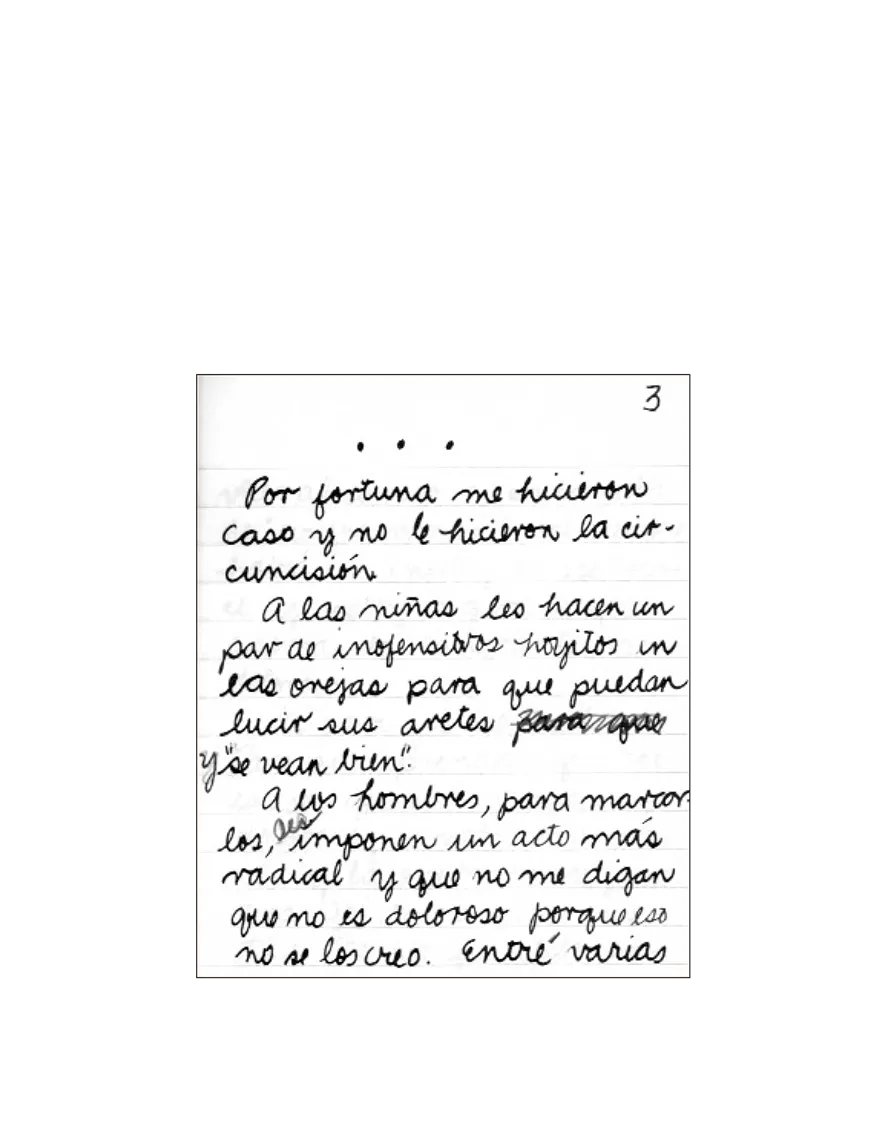 3
. . .
Por fortuna me hicieron
caso y no le hicieron la cir-
cuncisión.
A las niñas les hacen un
par de inofensivos hoyitos en
las orejas para que puedan
lucir sus aretes para que
y "se vean bien".
A los hombres, para marcar-
los, les imponen un acto más
radical y que no me digan
que no es doloroso porque eso
no se los creo. Entré varias